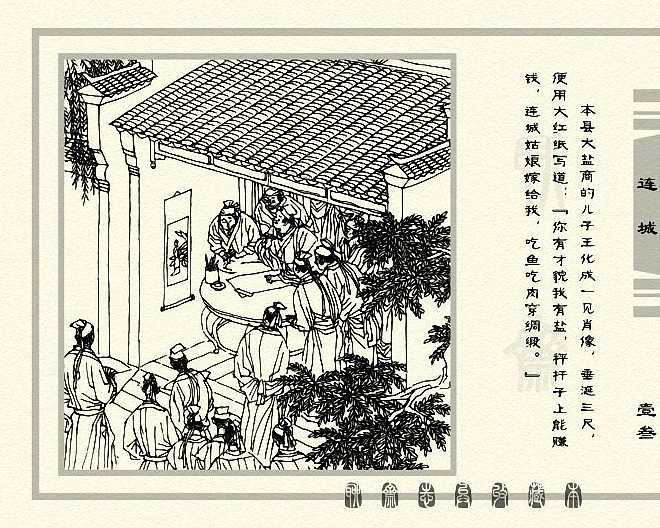 本县大盐商的儿子王化成一见肖像，垂涎三尺，
便用大红纸写道：「你有才貌我有盐，秤杆子上能赚
钱，连城姑娘嫁给我，吃鱼吃肉穿绸缎。」
连城
壹叁
聊斋志异收藏本